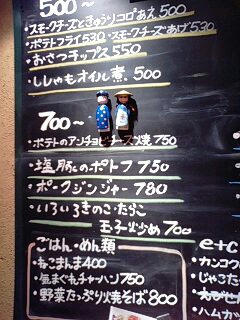 500～
・スモークチーズときゅうりコロあえ 500
・ポテトフライ530・スモークチーズあげ530
・おさつチップス 550
・ししゃもオイル煮.500
700～
・ポテトのアンチョビチーズ焼 750
・塩豚のポトフ 750
・ポークジンジャー 780
・いろいろきのこたらこ
玉子炒め 700
ごはん・めん類
・ねこまんま400
・気まぐれチャーハン750
・野菜たっぷり焼そば800
e+c
・カンコク
・じゃこた
・ハムカ